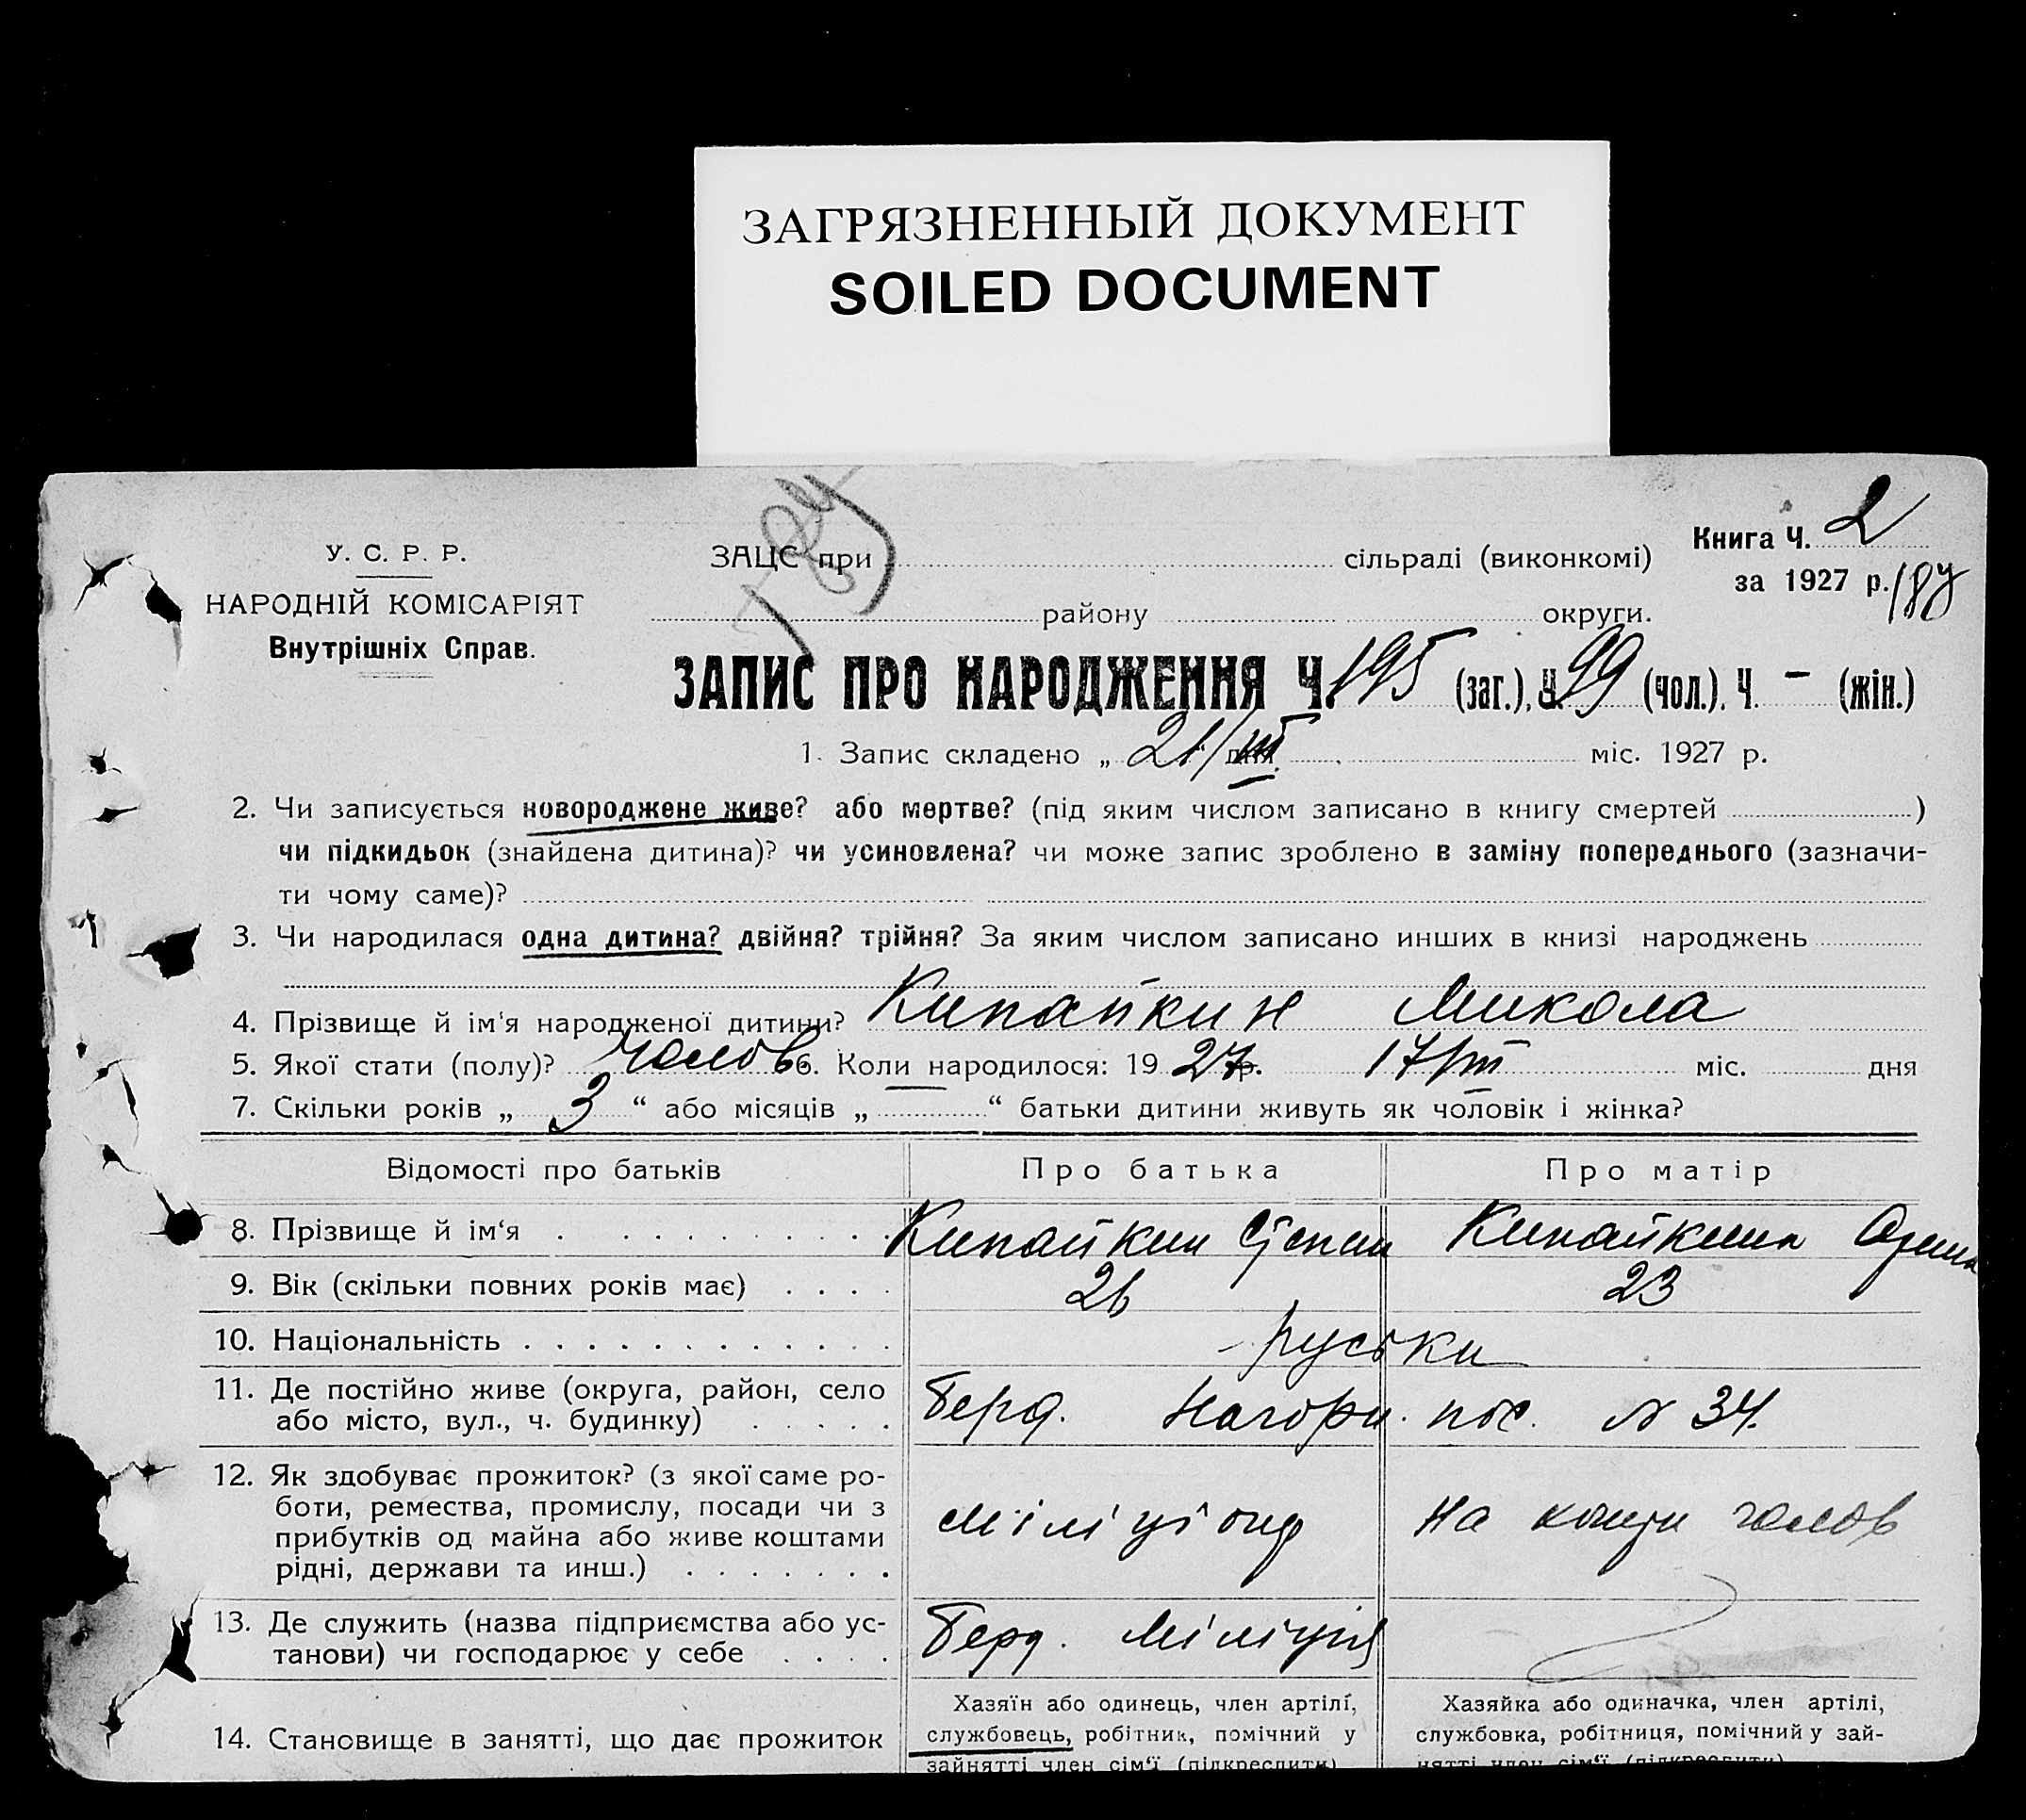 ЗАГРЯЗНЕННЫЙ ДОКУМЕНТ
SOILED DOCUMENT
Книга Ч. 2
за 1927 р.
У. С. Р. Р.
НАРОДНІЙ КОМІСАРІЯТ
Внутрішніх Справ.
ЗАЦС при сільраді (виконкомі)
району округи.
ЗАПИС ПРО НАРОДЖЕННЯ Ч. 195 (заг.), Ч. 99 (чол.), Ч. – (жін.)
1. Запис складено „ 21/III дня міс. 1927 р.
2. Чи записується новороджене живе? або мертве? (під яким числом записано в книгу смертей )
чи підкидьок (знайдена дитина)? чи усиновлена? чи може запис зроблено в заміну попереднього (зазначи-
ти чому саме)?
3. Чи народилася одна дитина? двійня? трійня? За яким числом записано инших в книзі народжень
4. Прізвище й ім'я народженої дитини? Кипайкин Микола
5. Якої стати (полу)? чолов 6. Коли народилося: 19 27 р. 17/III міс. дня
7. Скільки років „ 3 “ або місяців „ “ батьки дитини живуть як чоловік і жінка?
Відомості про батьків Про батька Про матір
8. Прізвище й ім‘я . . . . . . . . . . Кипайкин Степан Кипайкина
9. Вік (скільки повних років має) . . . . 26 23
10. Національність . . . . . . . . . . . . . руськи
11. Де постійно живе (округа, район, село
або місто, вул., ч. будинку) . . . . . Берд. Нагорн. пос. № 34.
12. Як здобуває прожиток? (з якої саме ро-
боти, ремества, промислу, посади чи з
прибутків од майна або живе коштами
рідні, держави та инш.) . . . . . . . міліціонер На кошти чолов
13. Де служить (назва підприємства або ус-
танови) чи господарює у себе . . . . Берд. Міліція
14. Становище в занятті, що дає прожиток
Хазяїн або одинець, член артілі,
службовець, робітник, помічний у
зайнятті член сім‘ї (підкреслити)
Хазяйка або одиначка, член артілі,
службовка, робітниця, помічний у зай-
нятті член сім‘ї (підкреслити)